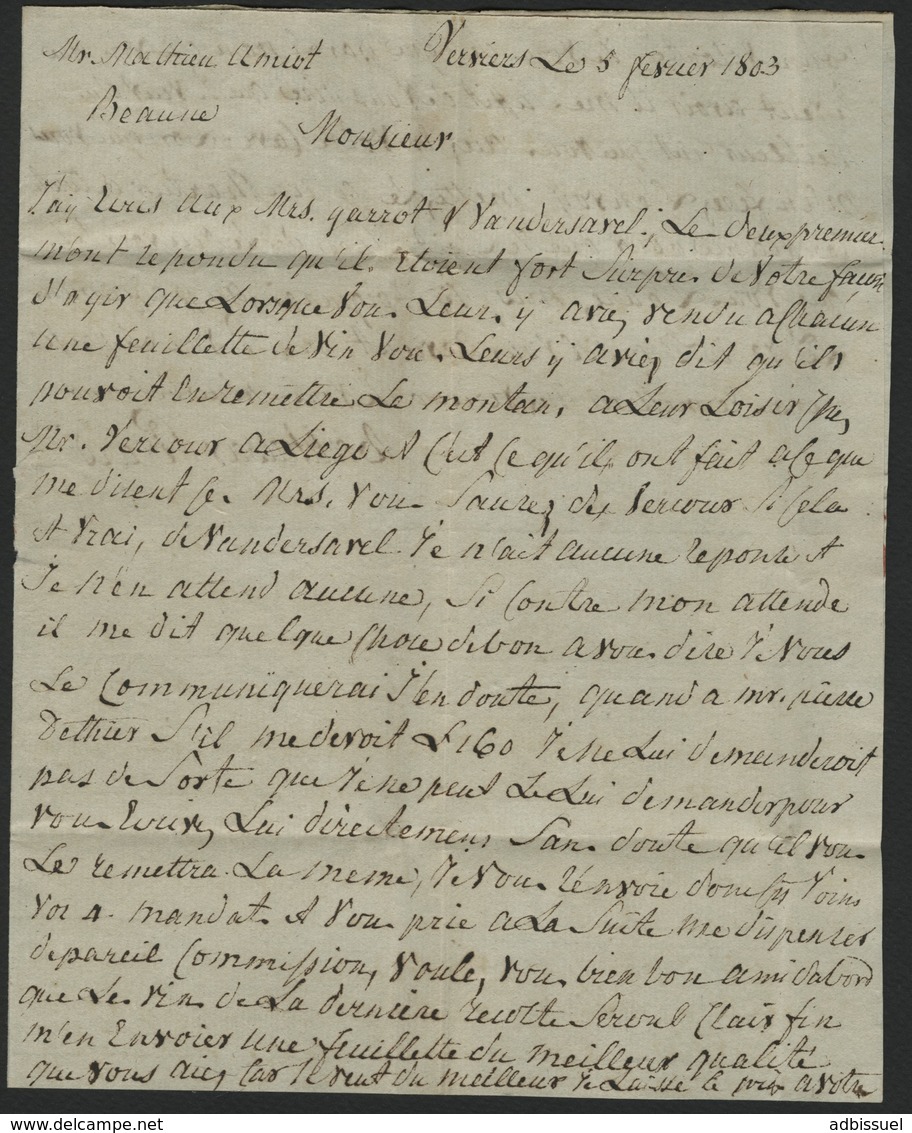 Mr. Mathieu Amiot Verviers Le 5 fevrier 1803
Beaune
Monsieur
J'ay Ecris aux Mrs. garrot & Vandersavel, Le deux premier
m'ont repondu qu'il. Etoient fort Surpris de Votre façon
d'agir que Lorsque Vou. Leur. y aviez vendu a Chacun
une feuillette de Vin Vou. Leurs y aviez dit qu'ils
pouvoit En remettre Le montan, a Leur Loisir chez
Mr. Vercour a Liege et C'est Ce qu'ils ont fait a Ce que
me disent Ce. Mrs. Vou. Saurez de Vercour Si Cela
Et Vrai, de Vandersavel Je n'ait aucune reponse Et
Je n'en attend aucune, Si Contre mon attende
il me dit quelque Chose de bon a vou. dire Je Vous
Le Communiquerai J'en doute, quand a mr. pierre
Dethier S'il me devoit £ 160 Je ne Lui demanderoit
pas de Sorte que Je ne peut Le Lui demander pour
vou. Ecrivez Lui directemens San. doute qu'il vou.
Le remettra La meme, Je Vou. Renvoie donc
Vos 4. mandat. Et Vou. prie a La Suite me dispenser
de pareil Commission, Voulez vou. bien bon ami d'abord
que Le vin. de La derniere recolte Serout Clair fin
m'en Envoier une feuillette du meilleur qualité
que vous aiez Car Je veut du meilleur Je Laisse le prix a votre